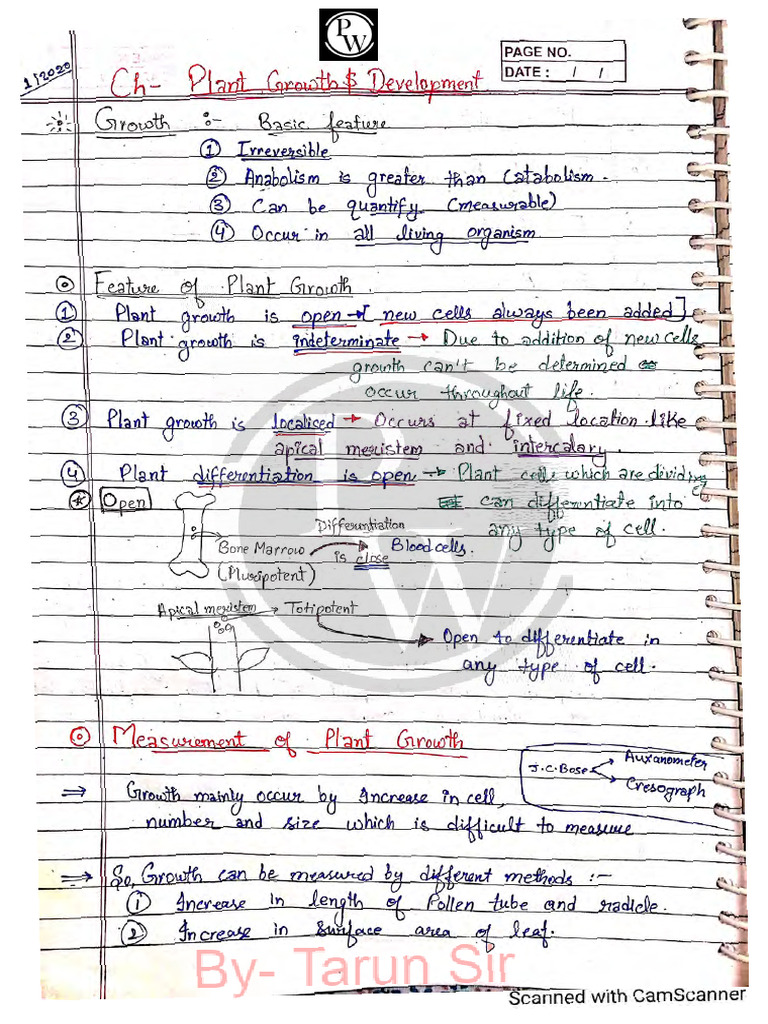 PW
PAGE NO.
DATE : / /
1/2020
Ch- Plant Growth & Development
Growth :- Basic feature
① Irreversible
② Anabolism is greater than Catabolism.
③ Can be quantify (measurable)
④ Occur in all living organism
Feature of Plant Growth.
① Plant growth is open → [new cells always been added]
② Plant growth is indeterminate → Due to addition of new cells
growth can't be determined
occur throughout life.
③ Plant growth is localised → Occurs at fixed location like
apical meristem and intercalary.
④ Plant differentiation is open → Plant cells which are dividing
can differentiate into
any type of cell.
Open
Differentiation
Bone Marrow is close Blood cells.
(Pluripotent)
Apical meristem → Totipotent
Open to differentiate in
any type of cell.
Measurement of Plant Growth
J.C.Bose Auxanometer
Cresograph
⇒ Growth mainly occur by Increase in cell,
number and size which is difficult to measure
⇒ So, Growth can be measured by different methods :-
① Increase in length of Pollen tube and radicle.
② Increase in surface area of leaf.
By- Tarun Sir
Scanned with CamScanner